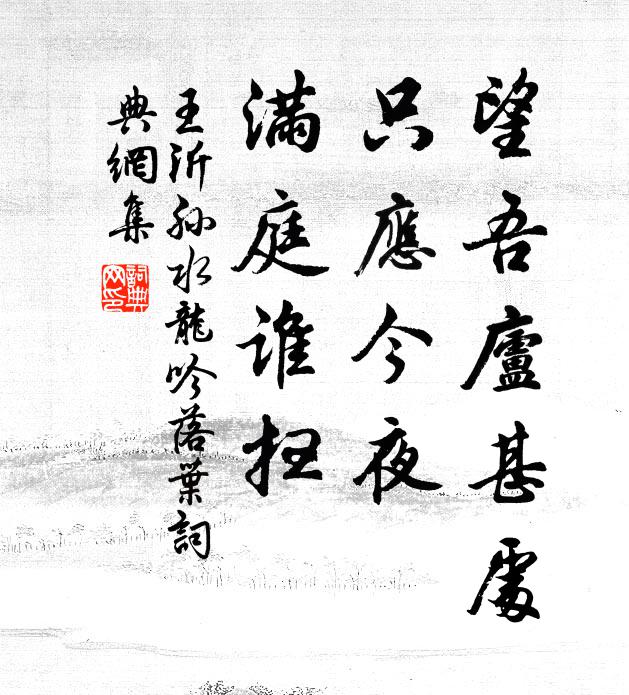 望吾廬甚處
只應今夜
滿庭誰掃
王沂孫水龍吟落葉詞
典網集
詞典网印